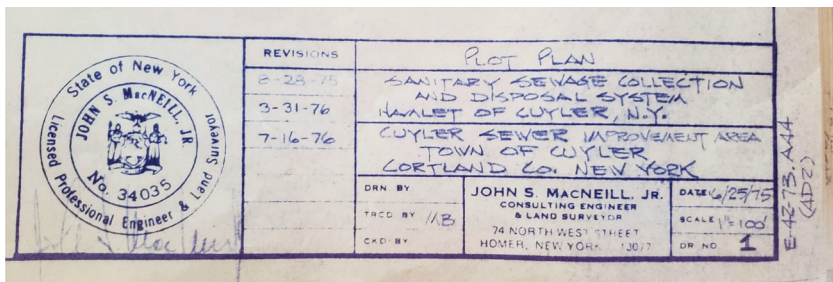 State of New York
JOHN S. MacNEILL, JR
No. 34035
Licensed Professional Engineer & Land Surveyor
REVISIONS
8-28-75
3-31-76
7-16-76
PLOT PLAN
SANITARY SEWAGE COLLECTION
AND DISPOSAL SYSTEM
HAMLET OF CUYLER, N.Y.
CUYLER SEWER IMPROVEMENT AREA
TOWN OF CUYLER
CORTLAND CO. NEW YORK
DRN BY
TRCD BY
CKD BY
JOHN S. MACNEILL, JR.
CONSULTING ENGINEER
& LAND SURVEYOR
74 NORTH WEST STREET
HOMER, NEW YORK 13077
DATE 6/25/75
SCALE 1"=100'
DR NO 1
E-42-73.A44
(4D2)